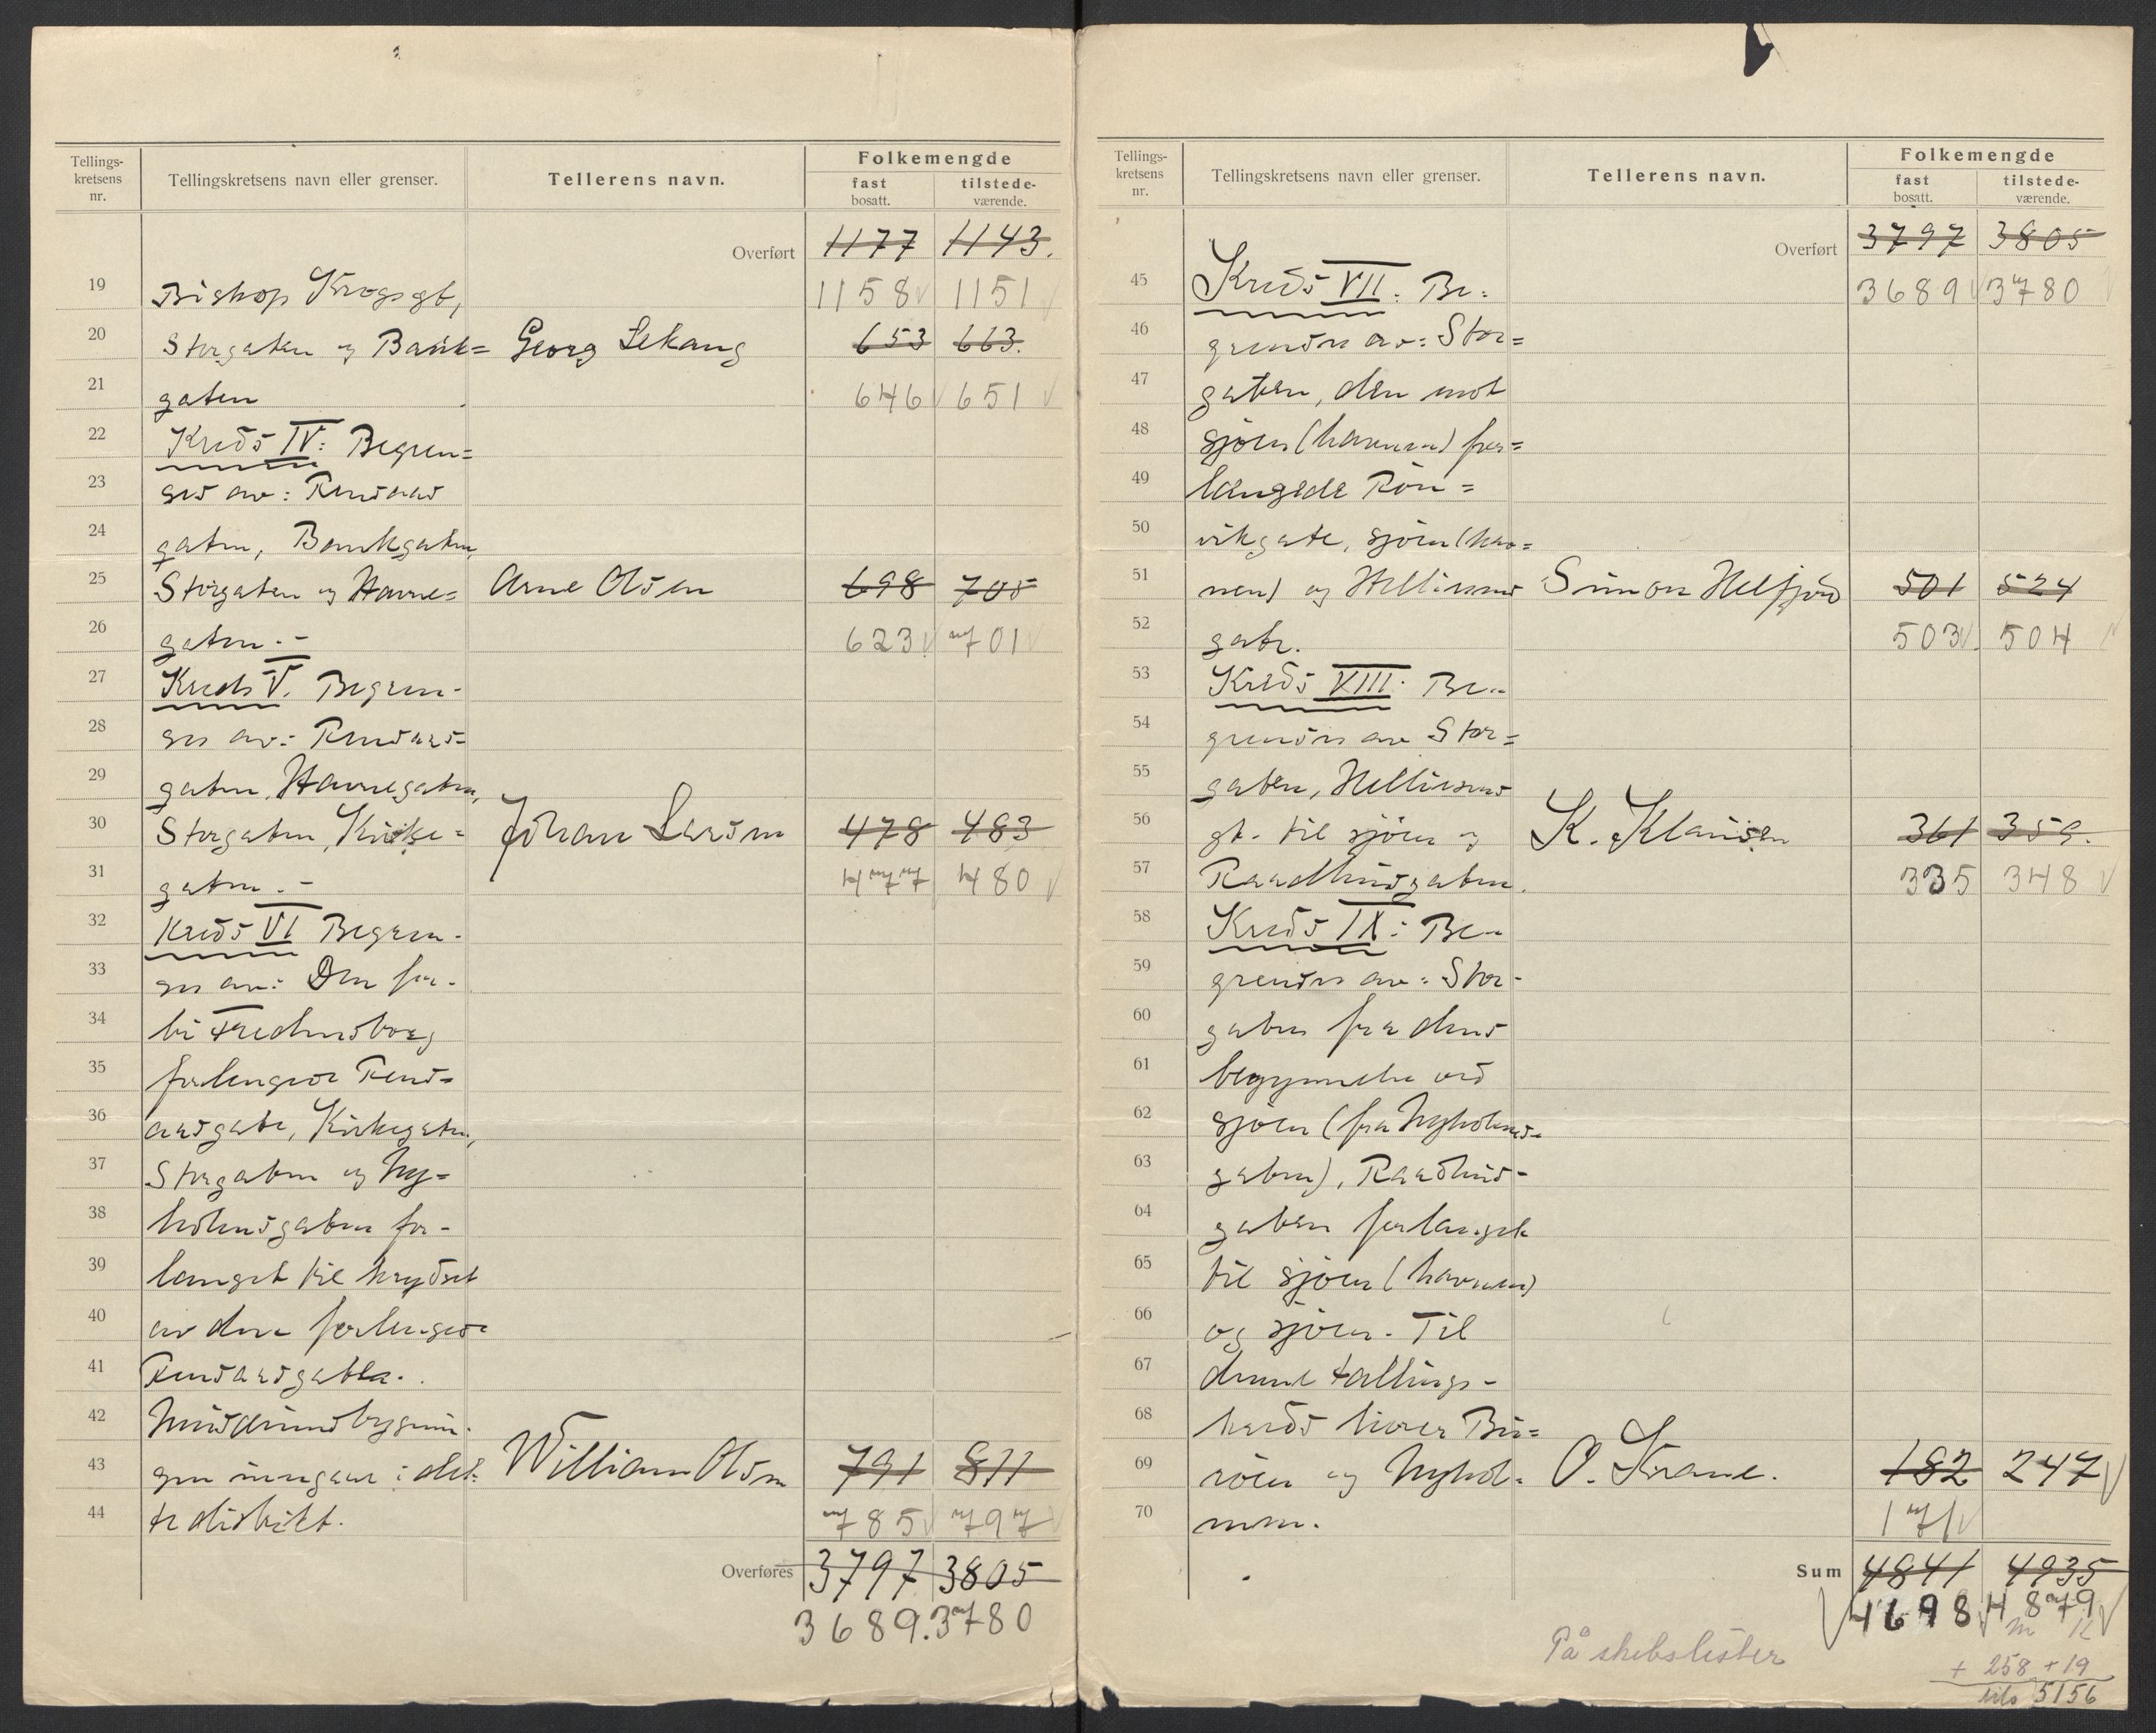 Tellings-
kretsens
nr.
Tellingskretsens navn eller grenser.
Tellerens navn.
Folkemengde
fast
bosatt.
tilstede-
værende.
Overført 1177 1143.
19 Bishop Krogsgt, 1158 1151
20 Storgaten og Bank= Georg Lekang 653 663.
21 gaten 646 651
22 Kreds IV: Begren=
23 ses av: Rensaas
24 gaten, Bankgaten,
25 Storgaten og Havne= Arne Olsen 698 705
26 gaten.- 623 701
27 Kreds V. Begren-
28 ses av: Rensaas-
29 gaten, Havnegaten,
30 Storgaten, Kirke= Johan Larsen 478 483
31 gaten.- 477 480
32 Kreds VI Begren-
33 ses av: Den for-
34 bi Fredensborg
35 forlengede Rens-
36 aasgate, Kirkegaten,
37 Storgaten og Ny=
38 holmsgaten for-
39 langet til krydset
40 av den forlengede
41 Rensaasgata.
42 Mindrunsbygnin-
43 gen inngaar i det- William Olsen 791 811
44 te distrikt. 785 797
Overføres 3797 3805
3689. 3780
Tellings-
kretsens
nr.
Tellingskretsens navn eller grenser.
Tellerens navn.
Folkemengde
fast
bosatt.
tilstede-
værende.
Overført 3797 3805
45 Kreds VII: Be= 3689 3780
46 grenses av: Stor=
47 gaten, den mot
48 sjöen (havnen) for=
49 længede Rön=
50 vikgate, sjöen (hav=
51 nen) og Hellesens Simon Helfjord 501 524
52 gate. 503 504
53 Kreds VIII. Be-
54 grenses av Stor=
55 gaten, Hellesens
56 gt. til sjöen og K. Klausen 361 359.
57 Raadhusgaten. 335 348
58 Kreds IX: Be-
59 grenses av: Stor-
60 gaten fra dens
61 begynnelse ved
62 sjöen (fra Nyholms-
63 gaten), Raadhus-
64 gaten forlanget
65 til sjöen (havnen)
66 og sjöen. Til
67 denne tællings-
68 kreds hörer Bu=
69 röen og Nyhol- O. Krane. 182 247
70 men. 171
Sum 4841 4935
4698 4879
m k
På skibslister + 258 + 19
tils 5156